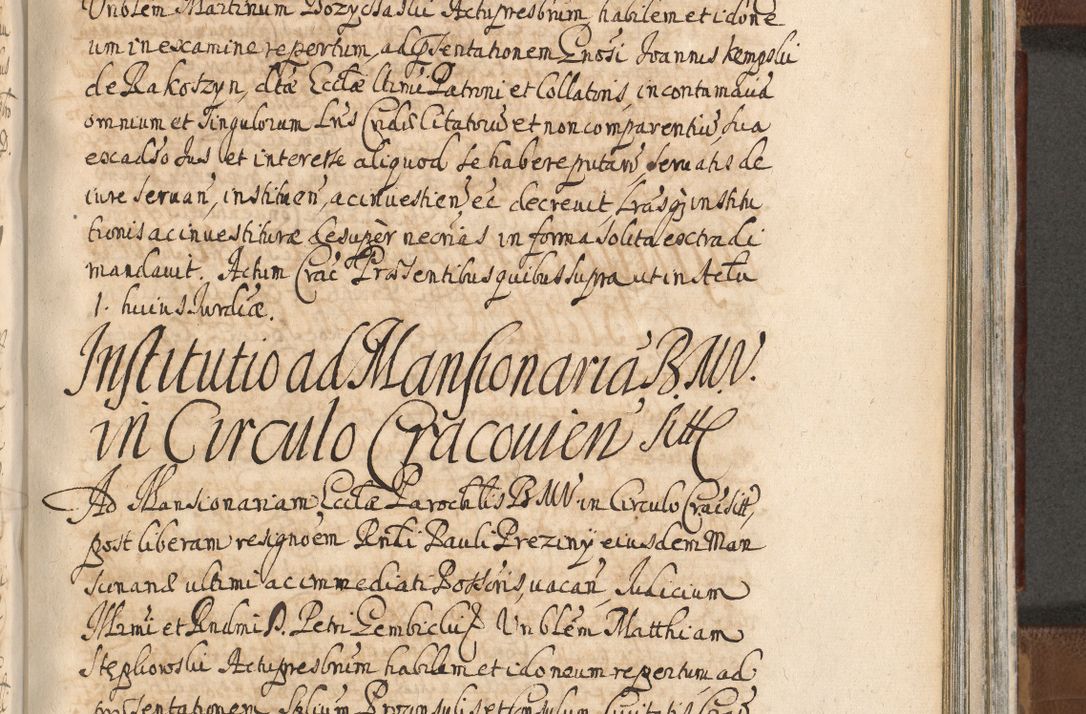 Vnblem Martinum Bozychaslii Actu presbrum, habilem et idone
um in examine repertum, ad pSentationem Gnosi Joannis Kempslii
de Rakoszyn, dtæ Ecclæ ltimi Patroni et Collatoris, in contumacia
omnium et singulorum Lris Cridis Citatoru et non comparentiu sua
excadso Jus et interesse aliquod se habere putan servatis de
iure servan, instituen, ac investien ec decrevit, Lrasq institu
tionis ac investituræ desuper necrias in forma solita extradi
mandavit. Actum Crac Præsentibus quibus supra ut in Actu
1. huius Jurdicæ.
Institutio ad Mansionaria B.M.V.
in Circulo Cracouien sitt
Ad Mansionariam Ecclæ Parochlis BMV in Circulo Crac sitt,
post liberam resignoem Rndi Pauli Breziny eiusdem Man
sionariæ ultimi ac immediati Possoris vacan, Judicium
Illrmi et Rndmi D. Petri Gembiclii Vnblem Matthiam
Stepliowslii Actu presbrum habilem et idoneum repertum, ad
præsentationem Sblium Proconsulis et Consulum Civitatis Crac